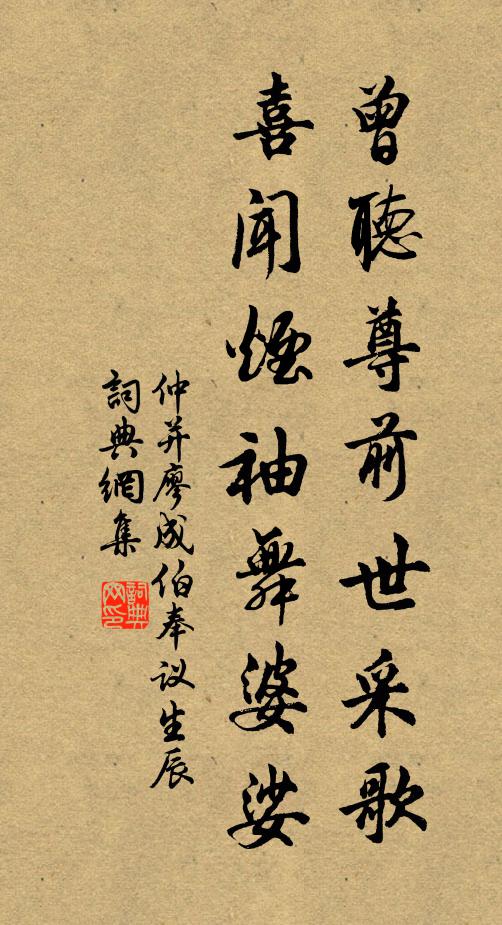 曾聽尊前世采歌
喜聞煙袖舞婆娑
仲並廖成伯奉议生辰
詞典網集
詞典网印